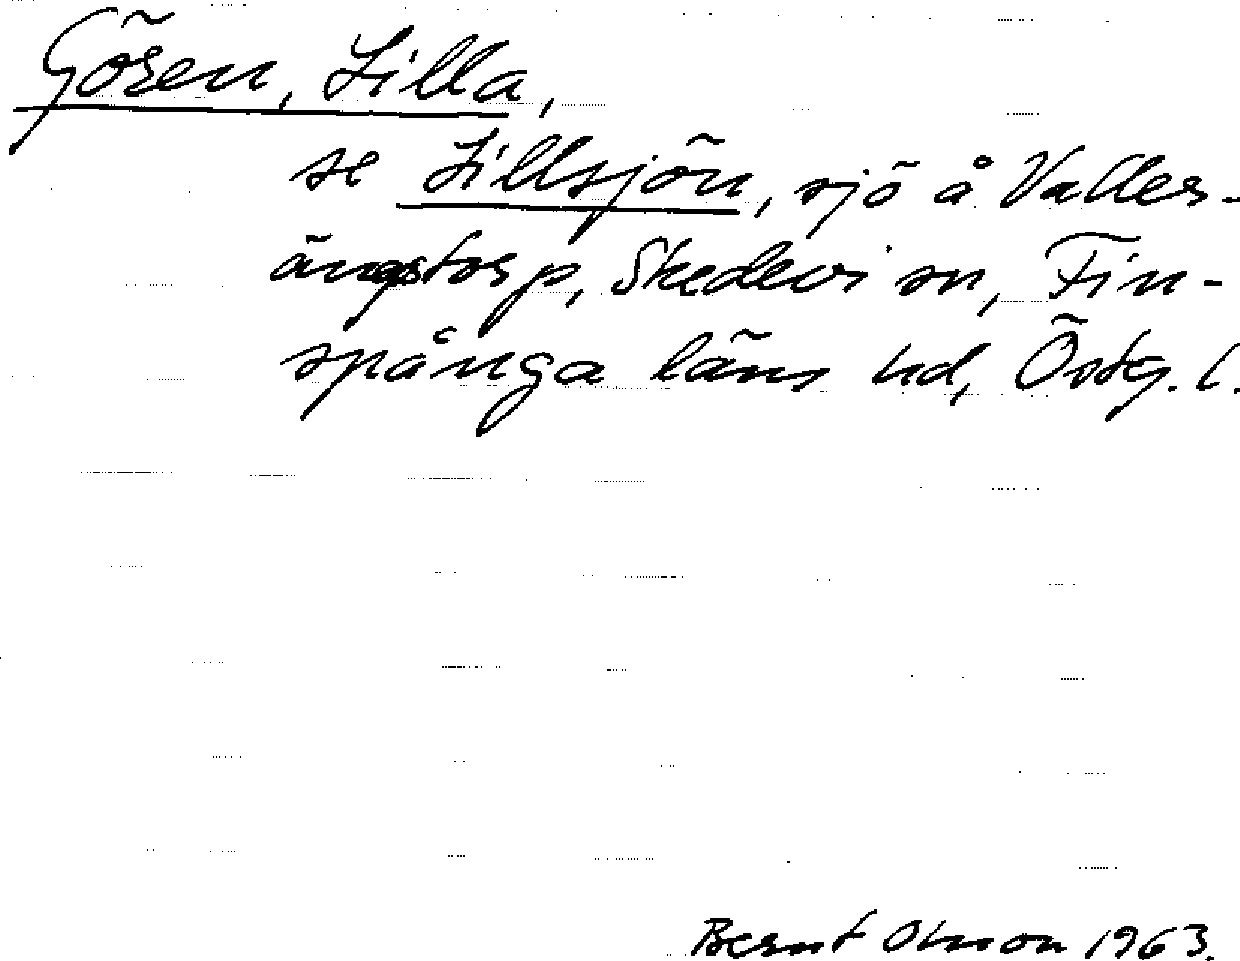 Gören, Lilla,
se Lillsjön, sjö å Valler-
ängstorp, Skedevi sn, Fin-
spånga läns hd, Östg. l.
Bernt Olsson 1963.